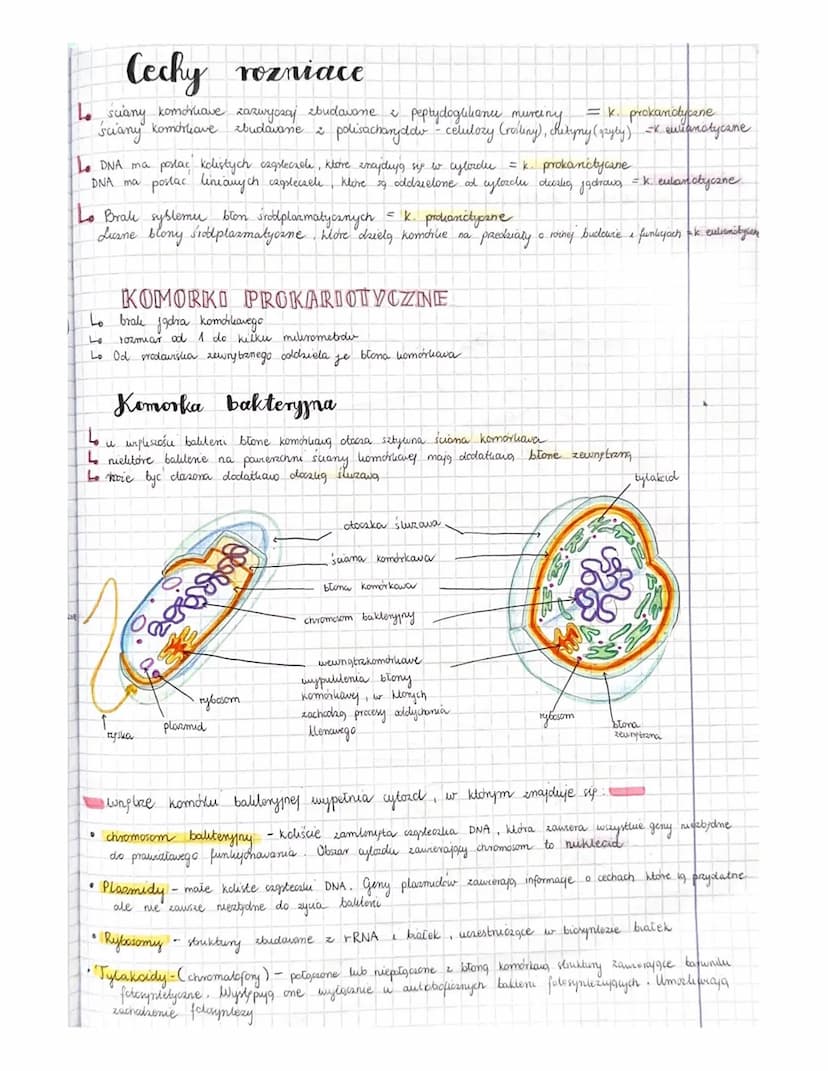 Cechy rozniace
↳ ściany komórkowe zazwyczaj zbudowane z peptydoglikanu mureiny = k. prokariotyczne
ściany komórkowe zbudowane z polisacharydów - celulozy (rośliny), chityny (grzyby) = k. eukariotyczne
↳ DNA ma postać kolistych cząsteczek, które znajdują się w cytozolu = k. prokariotyczne
DNA ma postać liniowych cząsteczek, które są oddzielone od cytozolu otoczką jądrową = k. eukariotyczne
↳ Brak systemu błon śródplazmatycznych = k. prokariotyczne
Liczne błony śródplazmatyczne, które dzielą komórkę na przedziały o różnej budowie i funkcjach = k. eukariotyczn
KOMORKI PROKARIOTYCZNE
↳ brak jądra komórkowego
↳ rozmiar od 1 do kilku mikrometrów
↳ Od środowiska zewnętrznego oddziela je błona komórkowa
Komorka bakteryjna
↳ u większości bakterii błonę komórkową otacza sztywna ściana komórkowa
↳ niektóre bakterie na powierzchni ściany komórkowej mają dodatkową błonę zewnętrzną
↳ może być otoczona dodatkowo otoczką śluzową
tylakoid
otoczka śluzowa
ściana komórkowa
błona komórkowa
chromosom bakteryjny
wewnątrzkomórkowe
wypuklenia błony
komórkowej, w których
zachodzą procesy oddychania
tlenowego
rybosom
plazmid
rzęska
rybosom
błona
zewnętrzna
wnętrze komórki bakteryjnej wypełnia cytozol, w którym znajduje się:
• chromosom bakteryjny - koliście zamknięta cząsteczka DNA, która zawiera wszystkie geny niezbędne
do prawidłowego funkcjonowania. Obszar cytozolu zawierający chromosom to nukleoid
• Plazmidy - małe koliste cząsteczki DNA. Geny plazmidów zawierają informacje o cechach które są przydatne
ale nie zawsze niezbędne do życia bakterii
• Rybosomy - struktury zbudowane z rRNA i białek, uczestniczące w biosyntezie białek
• Tylakoidy - (chromatofory) - połączone lub niepołączone z błoną komórkową struktury zawierające barwniki
fotosyntetyczne. Występują one wyłącznie u autotroficznych bakterii fotosyntezujących. Umożliwiają
zachodzenie fotosyntezy